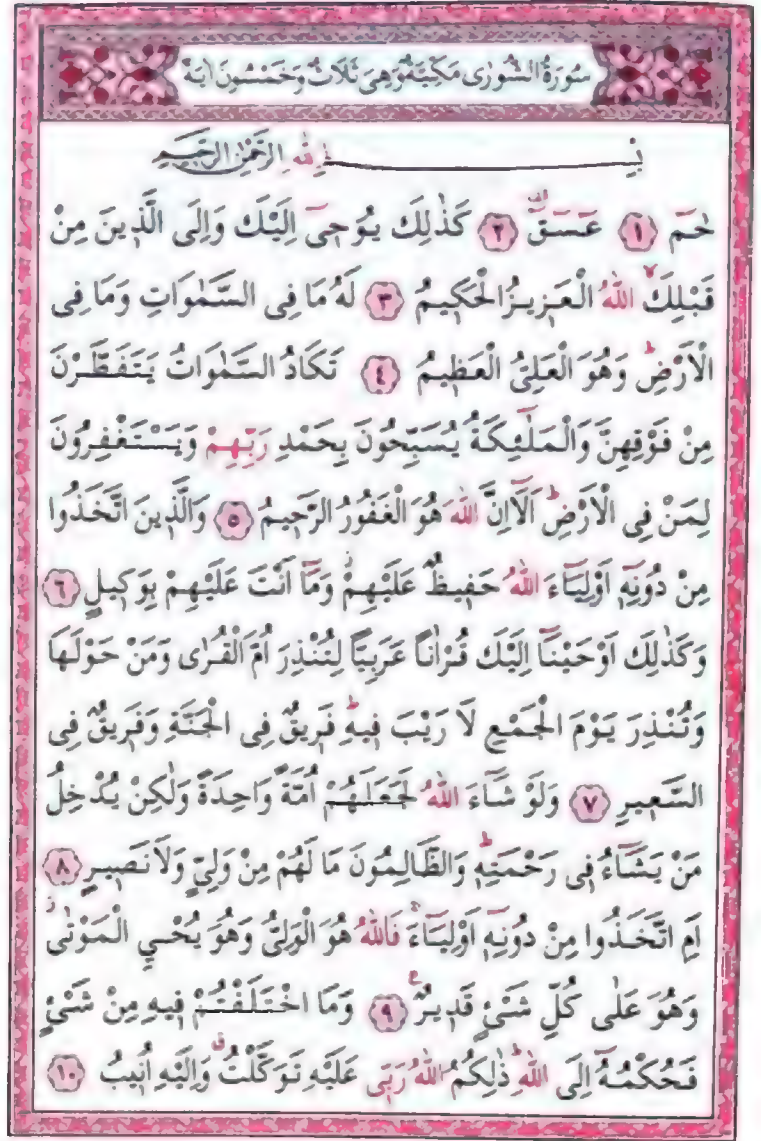 سُورَةُ الشُّورٰى مَكِّيَّةٌ وَهِيَ ثَلَاثٌ وَخَمْسُونَ اٰيَةً
بِسْمِ اللّٰهِ الرَّحْمٰنِ الرَّحٖيمِ
حٰمٓ ﴿١﴾ عٓسٓقٓ ﴿٢﴾ كَذٰلِكَ يُوحٖٓى اِلَيْكَ وَاِلَى الَّذٖينَ مِنْ
قَبْلِكَۙ اللّٰهُ الْعَزٖيزُ الْحَكٖيمُ ﴿٣﴾ لَهُ مَا فِى السَّمٰوَاتِ وَمَا فِى
الْاَرْضِؕ وَهُوَ الْعَلِىُّ الْعَظٖيمُ ﴿٤﴾ تَكَادُ السَّمٰوَاتُ يَتَفَطَّرْنَ
مِنْ فَوْقِهِنَّ وَالْمَلٰٓئِكَةُ يُسَبِّحُونَ بِحَمْدِ رَبِّهِمْ وَيَسْتَغْفِرُونَ
لِمَنْ فِى الْاَرْضِؕ اَلَٓا اِنَّ اللّٰهَ هُوَ الْغَفُورُ الرَّحٖيمُ ﴿٥﴾ وَالَّذٖينَ اتَّخَذُوا
مِنْ دُونِهٖٓ اَوْلِيَٓاءَ اللّٰهُ حَفٖيظٌ عَلَيْهِمْؗ وَمَٓا اَنْتَ عَلَيْهِمْ بِوَكٖيلٍ ﴿٦﴾
وَكَذٰلِكَ اَوْحَيْنَٓا اِلَيْكَ قُرْاٰنًا عَرَبِيًّا لِتُنْذِرَ اُمَّ الْقُرٰى وَمَنْ حَوْلَهَا
وَتُنْذِرَ يَوْمَ الْجَمْعِ لَا رَيْبَ فٖيهِؕ فَرٖيقٌ فِى الْجَنَّةِ وَفَرٖيقٌ فِى
السَّعٖيرِ ﴿٧﴾ وَلَوْ شَٓاءَ اللّٰهُ لَجَعَلَهُمْ اُمَّةً وَاحِدَةً وَلٰكِنْ يُدْخِلُ
مَنْ يَشَٓاءُ فٖى رَحْمَتِهٖؕ وَالظَّالِمُونَ مَا لَهُمْ مِنْ وَلِىٍّ وَلَا نَصٖيرٍ ﴿٨﴾
اَمِ اتَّخَذُوا مِنْ دُونِهٖٓ اَوْلِيَٓاءَۚ فَاللّٰهُ هُوَ الْوَلِىُّ وَهُوَ يُحْيِى الْمَوْتٰىؗ
وَهُوَ عَلٰى كُلِّ شَىْءٍ قَدٖيرٌ ﴿٩﴾ وَمَا اخْتَلَفْتُمْ فٖيهِ مِنْ شَىْءٍ
فَحُكْمُهُٓ اِلَى اللّٰهِؕ ذٰلِكُمُ اللّٰهُ رَبّٖى عَلَيْهِ تَوَكَّلْتُ وَاِلَيْهِ اُنٖيبُ ﴿١٠﴾